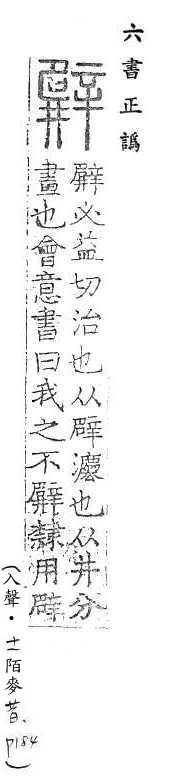 六書正譌
𨐨
𨐨必益切治也从辟灋也从井分
畫也會意書曰我之不𨐨隸用辟
(入聲・十一陌麥昔、p184)